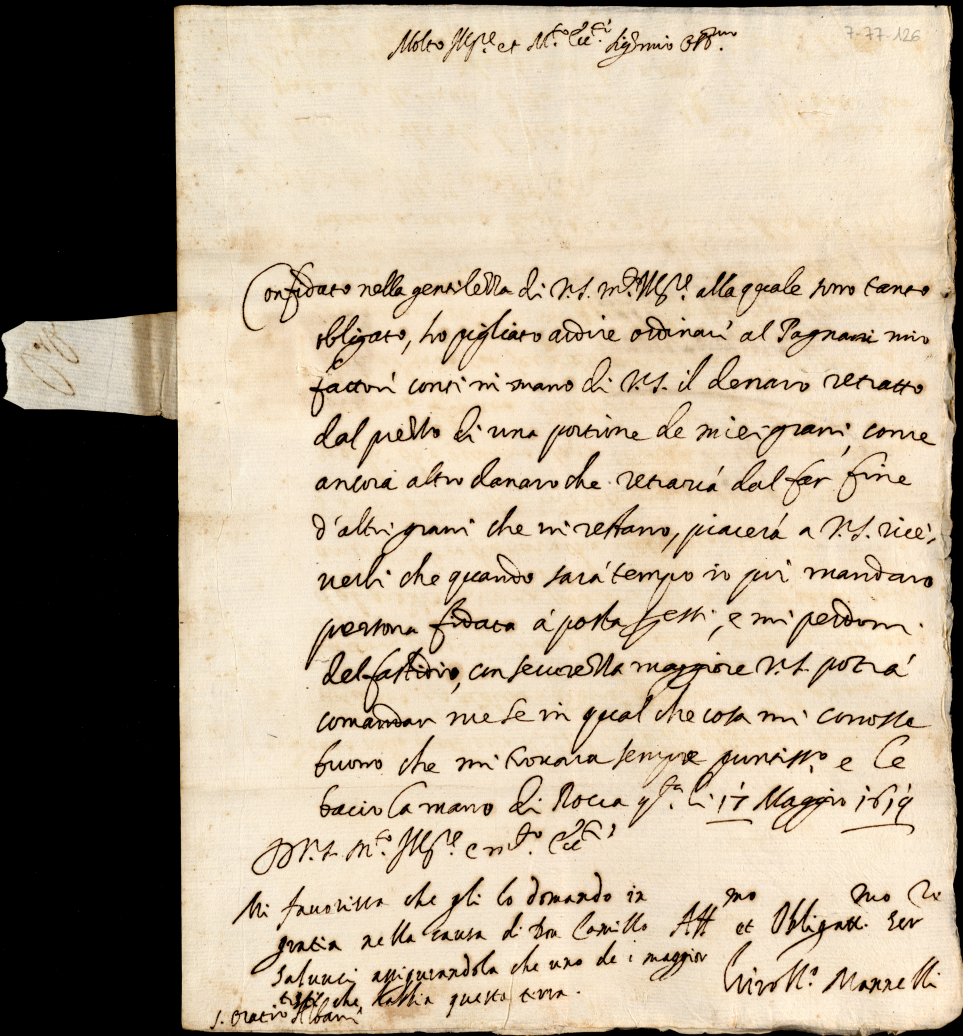 Molto Ill.re et M.to Ecc.te Sig.r mio Oss.mo
7-77-126
Confidato nella gentilezza di V.S. m.to Ill.re alla quale sono tanto
obligato, ho pigliato ardire ordinare al Pagnani mio
fattore conti in mano di V.S. il denaro retratto
dal prezzo di una portione de miei grani, come
ancora altro danaro che retrarrà dal far fine
d'altri grani che mi restano, piacerà a V.S. rice-
verli che quando sarà tempo io poi mandarò
persona fidata à posta per essi, e mi perdoni
del fastidio, con securezza maggiore V.S. potrà
comandar me se in qual che cosa mi conosce
buono che mi trovara sempre prontiss.o e le
bacio la mano di Rocca li 17 Maggio 1619
D V.S. M.to Ill.re e m.to Ecc.te
Mi favorisca che gli lo domando in
gratia nella causa di Don Camillo
Salvucci assigurandola che uno de i maggior
tristi che habbia questa terra.
Aff.mo et Obligatt.mo Ser.re
Mannelli
S. Oratio Albani